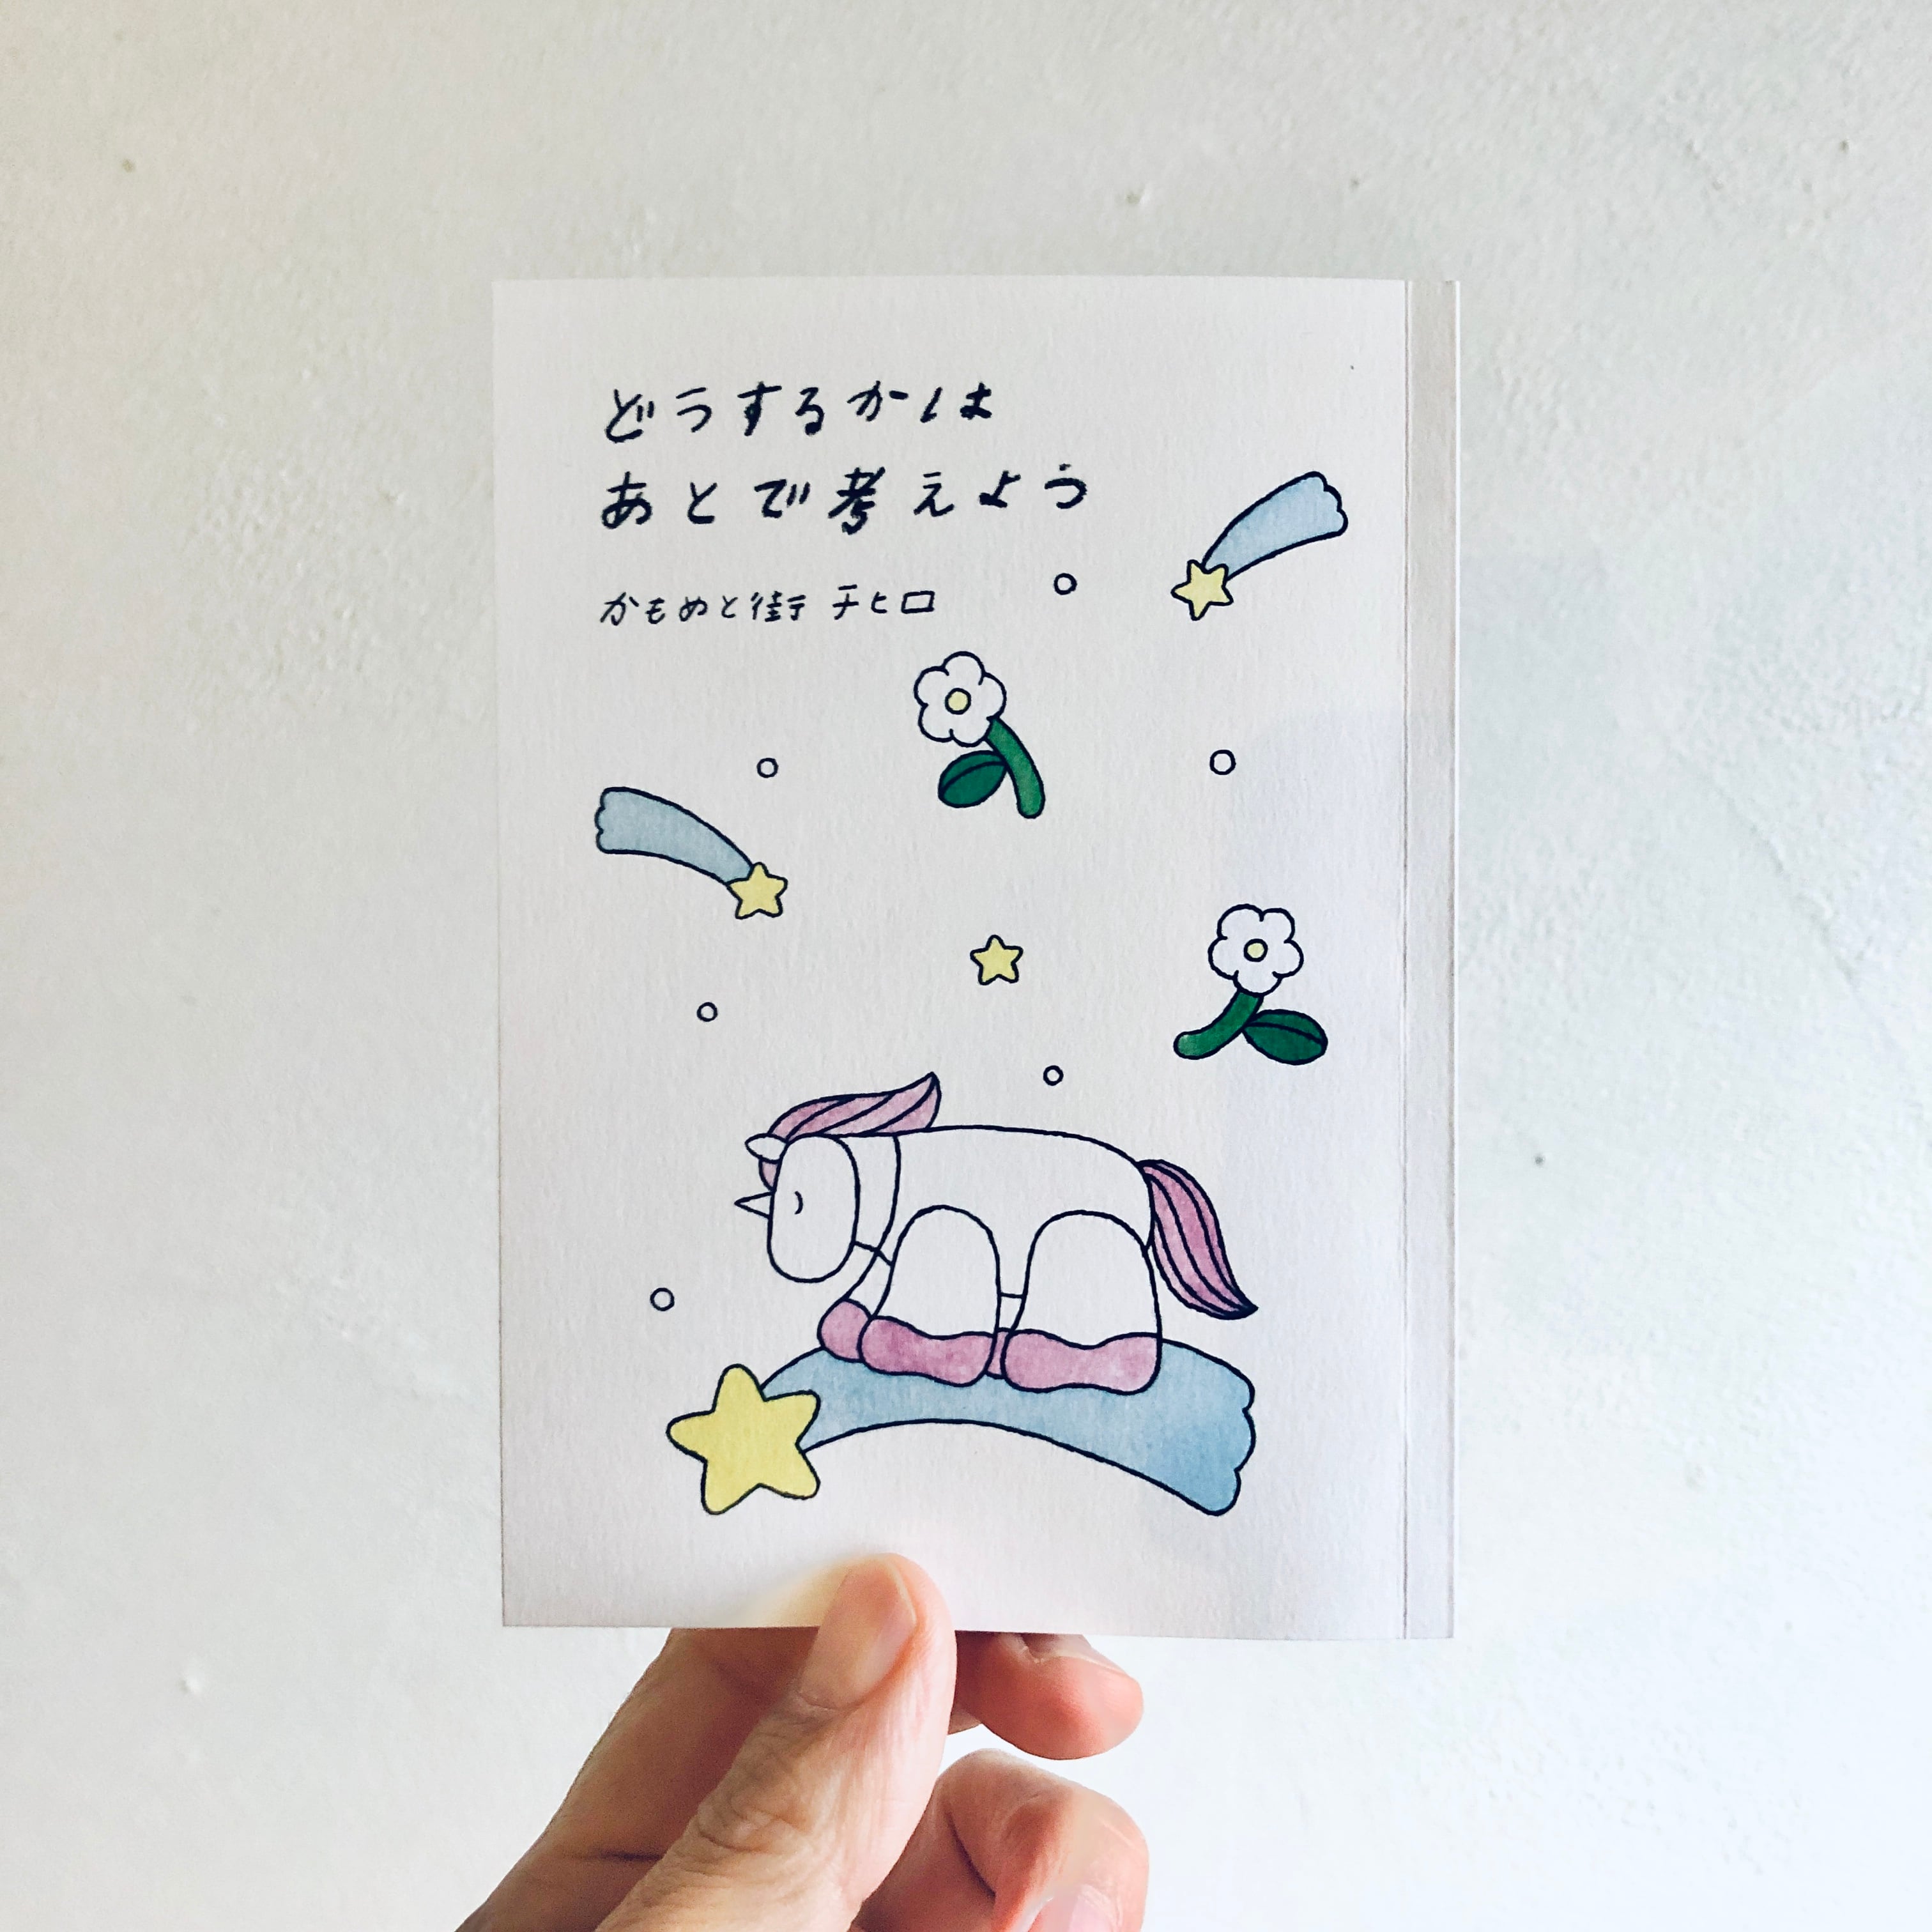 どうするかは
あとで考えよう
かもめと街 チヒロ